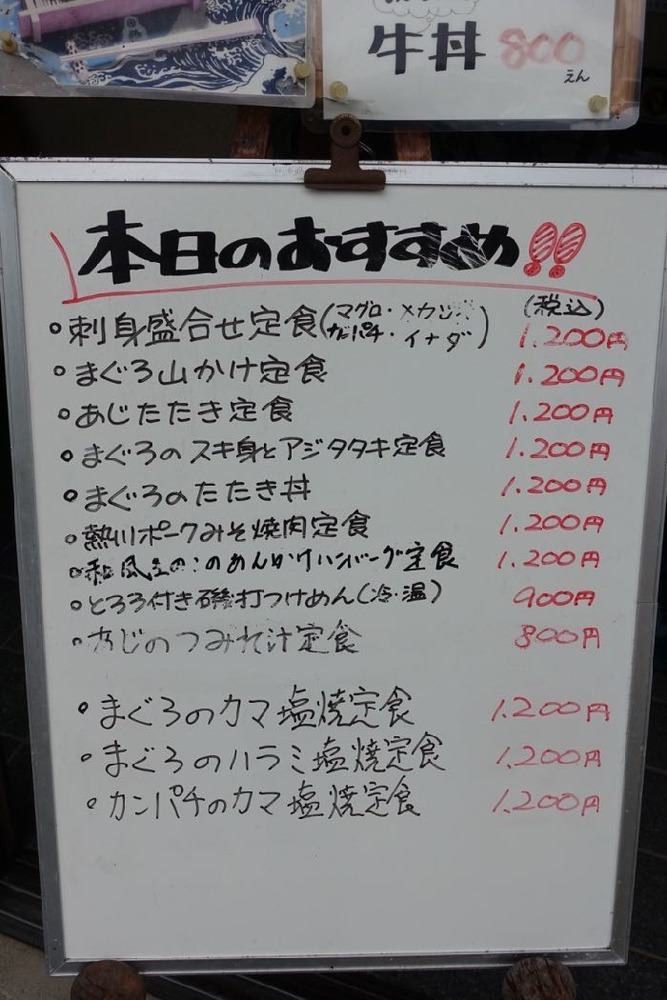 牛丼 800
えん
本日のおすすめ!!
(税込)
・刺身盛合せ定食(マグロ・メカジキ・カンパチ・イナダ) 1.200円
・まぐろ山かけ定食 1.200円
・あじたたき定食 1.200円
・まぐろのスキ身とアジタタキ定食 1.200円
・まぐろのたたき丼 1.200円
・熱川ポークみそ焼肉定食 1.200円
・和風きのこのあんかけハンバーグ定食 1.200円
・とろろ付き磯打つけめん(冷・温) 900円
・あじのつみれ汁定食 800円
・まぐろのカマ塩焼定食 1.200円
・まぐろのハラミ塩焼定食 1.200円
・カンパチのカマ塩焼定食 1.200円